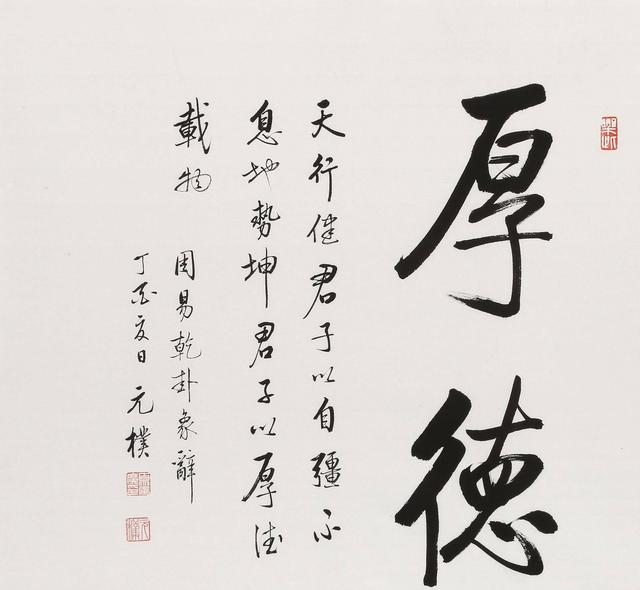 厚德
天行健君子以自彊不
息地勢坤君子以厚德
載物
周易乾卦象辭
丁酉夏日元樸